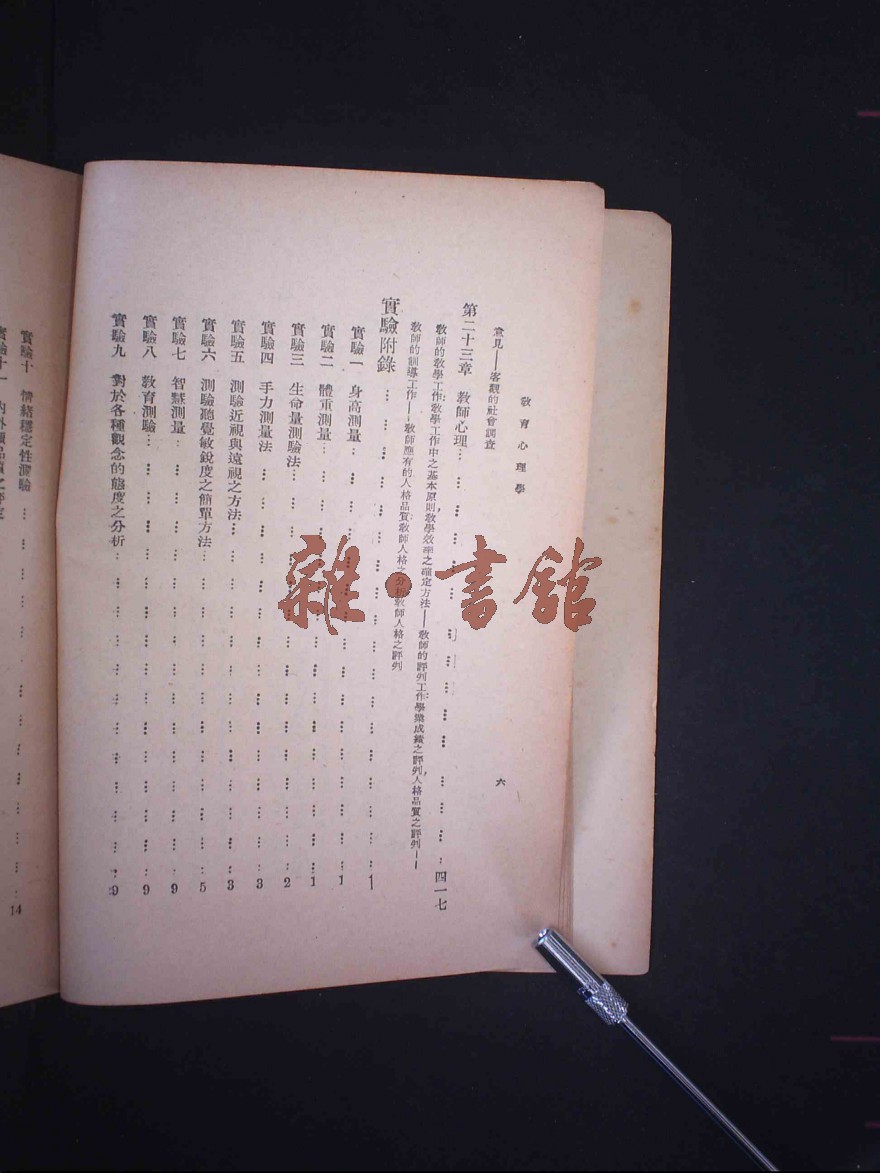 教育心理學
六
意見——客觀的社會調查
第二十三章 教師心理…………………………………………四一七
教師的教學工作:教學工作中之基本原則,教學效率之確定方法——教師的評判工作:學業成績之評判,人格品質之評判——
教師的訓導工作——教師應有的人格品質:教師人格之分析,教師人格之評判
實驗附錄…………………………………………1
實驗一 身高測量…………………………………………1
實驗二 體重測量…………………………………………1
實驗三 生命量測驗法…………………………………………2
實驗四 手力測量法…………………………………………3
實驗五 測驗近視與遠視之方法…………………………………………3
實驗六 測驗聽覺敏銳度之簡單方法…………………………………………5
實驗七 智慧測量…………………………………………9
實驗八 教育測驗…………………………………………9
實驗九 對於各種觀念的態度之分析…………………………………………9
實驗十 情緒穩定性測驗…………………………………………14
實驗十一
雜·書館